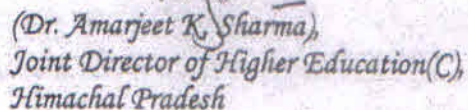 (Dr. Amarjeet K. Sharma),
Joint Director of Higher Education(C),
Himachal Pradesh